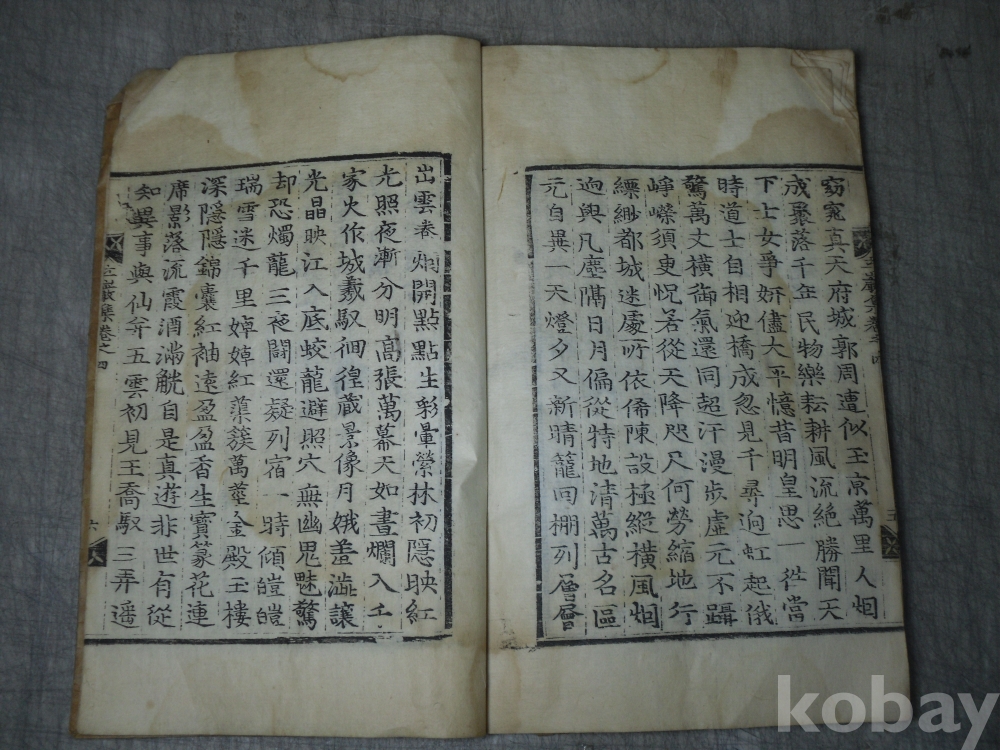 窈窕真天府城郭周遭似玉京萬里人烟
成聚落千年民物樂耘耕風流絶勝聞天
下士女爭妍儘大平憶昔明皇思一
時道士自相迎橋成忽見千尋逈虹起俄
驚萬丈橫御氣還同超汗漫步虛元不躡
崢嶸須臾怳若從天降咫尺何勞縮地行
縹緲都城迷處所依俙陳設極縱橫風烟
逈與凡塵隔日月偏從特地清萬古名區
元自異一天燈夕又新晴籠回棚列層層
出雲奉烟開點點生彩暈縈林初隱映紅
光照夜漸分明高張萬幕天如晝爛入千
家火作城羲馭徊徨藏景像月娥羞澁讓
光晶映江入底蛟龍避照穴無幽鬼魅驚
却恐燭龍三夜鬪還疑列宿一時傾皚皚
瑞雪迷千里婥婥紅蕖簇萬莖金殿玉樓
深隱隱錦囊紅袖遠盈盈香生寶篆花連
席影落流霞酒滿觥自是真遊非世有從
知異事與仙幷五雲初見王喬馭三弄遥
巖集卷之四
六
kobay